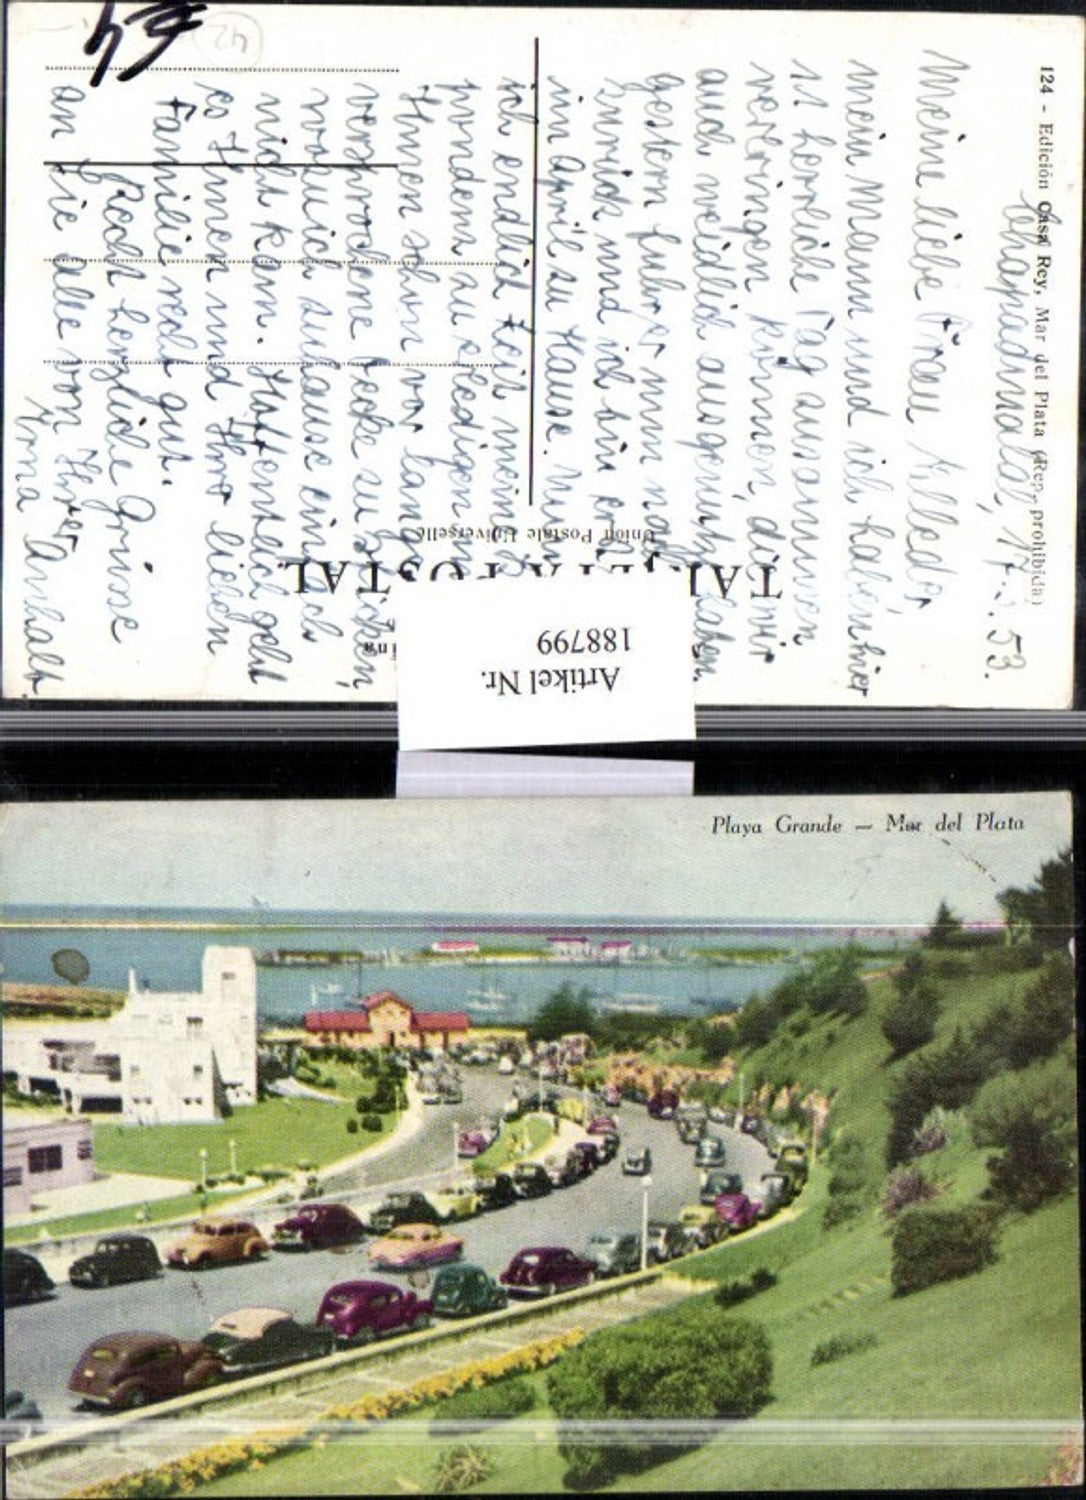 124 - Edición Casa Rey, Mar del Plata (Rep. prohibida)
Chapadmalal, 17.3.53.
Meine liebe Frau
mein Mann und ich haben hier
11 herrliche Tag zusammen
verbringen können, die wir
auch weidlich ausgenützt haben.
Gestern fuhr er nun
zurück und ich bin erst
im April zu Hause.
ich endlich Zeit
zu erledigen
Ihnen schon vor
versprochene Decke zu
was ich zuhause einfach
nicht kann. Hoffentlich geht
es Ihnen und Ihrer lieben
Familie recht gut.
Recht herzliche Grüsse
an Sie alle von Ihrer
Irma Anhalt
TARJETA POSTAL
Union Postale Universelle
42
Artikel Nr.
188799
Playa Grande — Mar del Plata